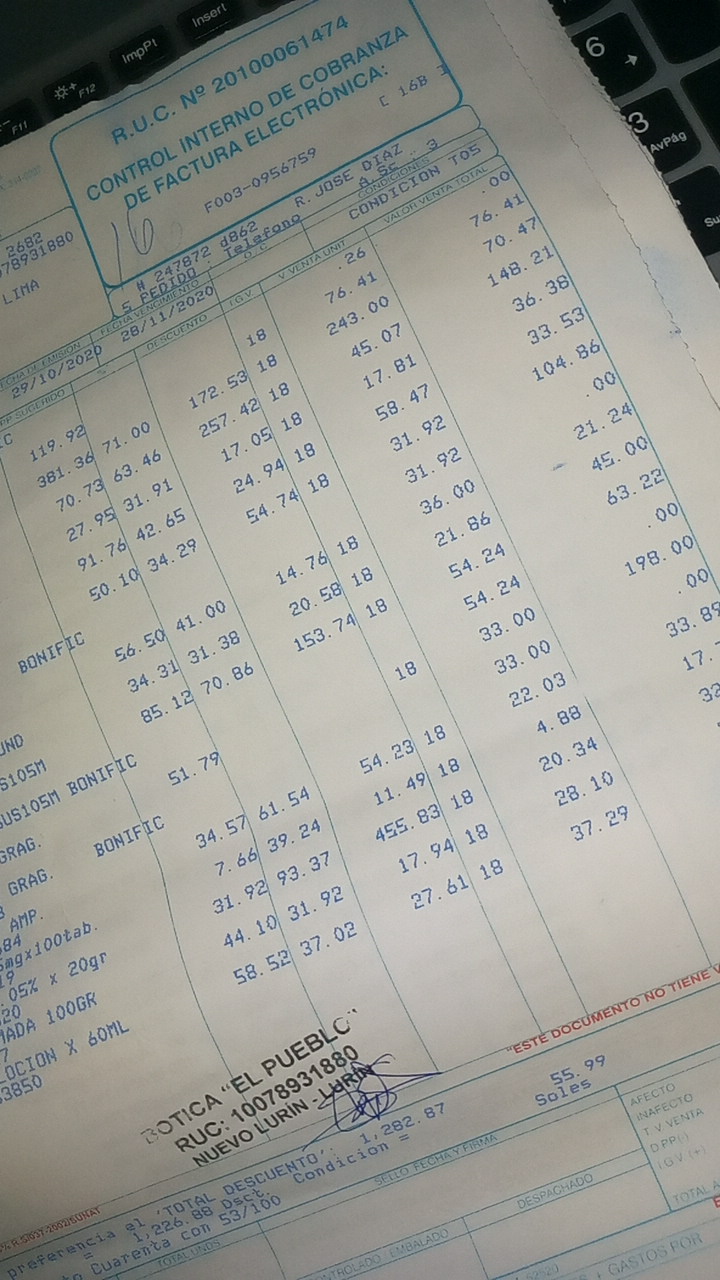 Insert
ImpPt
F12
F11
6
3
AvPág
R.U.C. Nº 20100061474
CONTROL INTERNO DE COBRANZA
DE FACTURA ELECTRÓNICA:
[ 16B ]
F003-0956759
16
R. JOSE DIAZ
A.Sc.. 3
# 247872 d862
S PEDIDO Telefono
O.C.
CONDICIONES
CONDICION T05
2682
078931880
LIMA
FECHA DE EMISIÓN
29/10/2020
FECHA VENCIMIENTO
28/11/2020
SUGERIDO % DESCUENTO I.G.V. V.VENTA UNIT VALOR VENTA TOTAL
18 .26 .00
119.92 172.53 18 76.41 76.41
381.36 71.00 257.42 18 243.00 70.47
70.73 63.46 17.05 18 45.07 148.21
27.95 31.91 24.94 18 17.81 36.38
91.76 42.65 54.74 18 58.47 33.53
50.10 34.29 31.92 104.86
BONIFIC 31.92 .00
56.50 41.00 14.76 18 36.00 21.24
34.31 31.38 20.58 18 21.86 45.00
85.12 70.86 153.74 18 54.24 63.22
UND 54.24 .00
S105M 51.79 18 33.00 198.00
SUS105M BONIFIC 33.00 .00
GRAG. 34.57 61.54 54.23 18 22.03 33.89
GRAG. BONIFIC 7.66 39.24 11.49 18 4.88 17.
AMP. 31.92 93.37 455.83 18 20.34 32
mgx100tab. 44.10 31.92 17.94 18 28.10
.05% x 20gr 58.52 37.02 27.61 18 37.29
MADA 100GR
LOCION X 60ML
3850
"ESTE DOCUMENTO NO TIENE V
BOTICA "EL PUEBLO"
RUC: 10078931880
NUEVO LURIN - LURIN
preferencia el 'TOTAL DESCUENTO': 1,282.87 55.99
= 1,226.88 Dsct. Condicion = Soles
Cuarenta con 53/100
TOTAL UNDS
SELLO FECHA Y FIRMA
EMBALADO
DESPACHADO
AFECTO
INAFECTO
T.V VENTA
D.PP(-)
I.G.V. (+)
TOTAL A
+ GASTOS POR